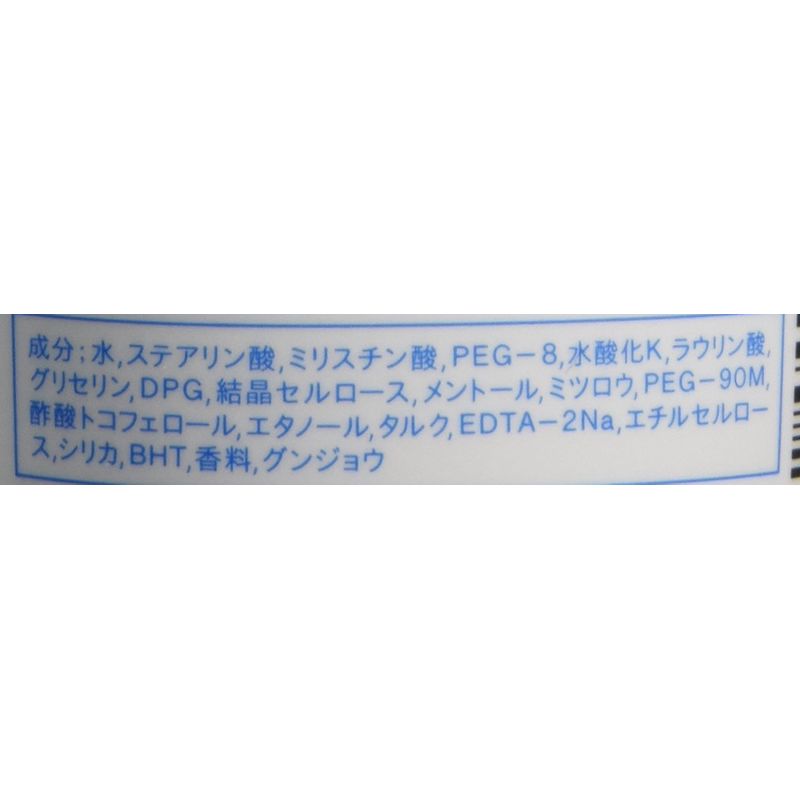 成分;水,ステアリン酸,ミリスチン酸,PEG－8,水酸化K,ラウリン酸,
グリセリン,DPG,結晶セルロース,メントール,ミツロウ,PEG－90M,
酢酸トコフェロール,エタノール,タルク,EDTA－2Na,エチルセルロー
ス,シリカ,BHT,香料,グンジョウ